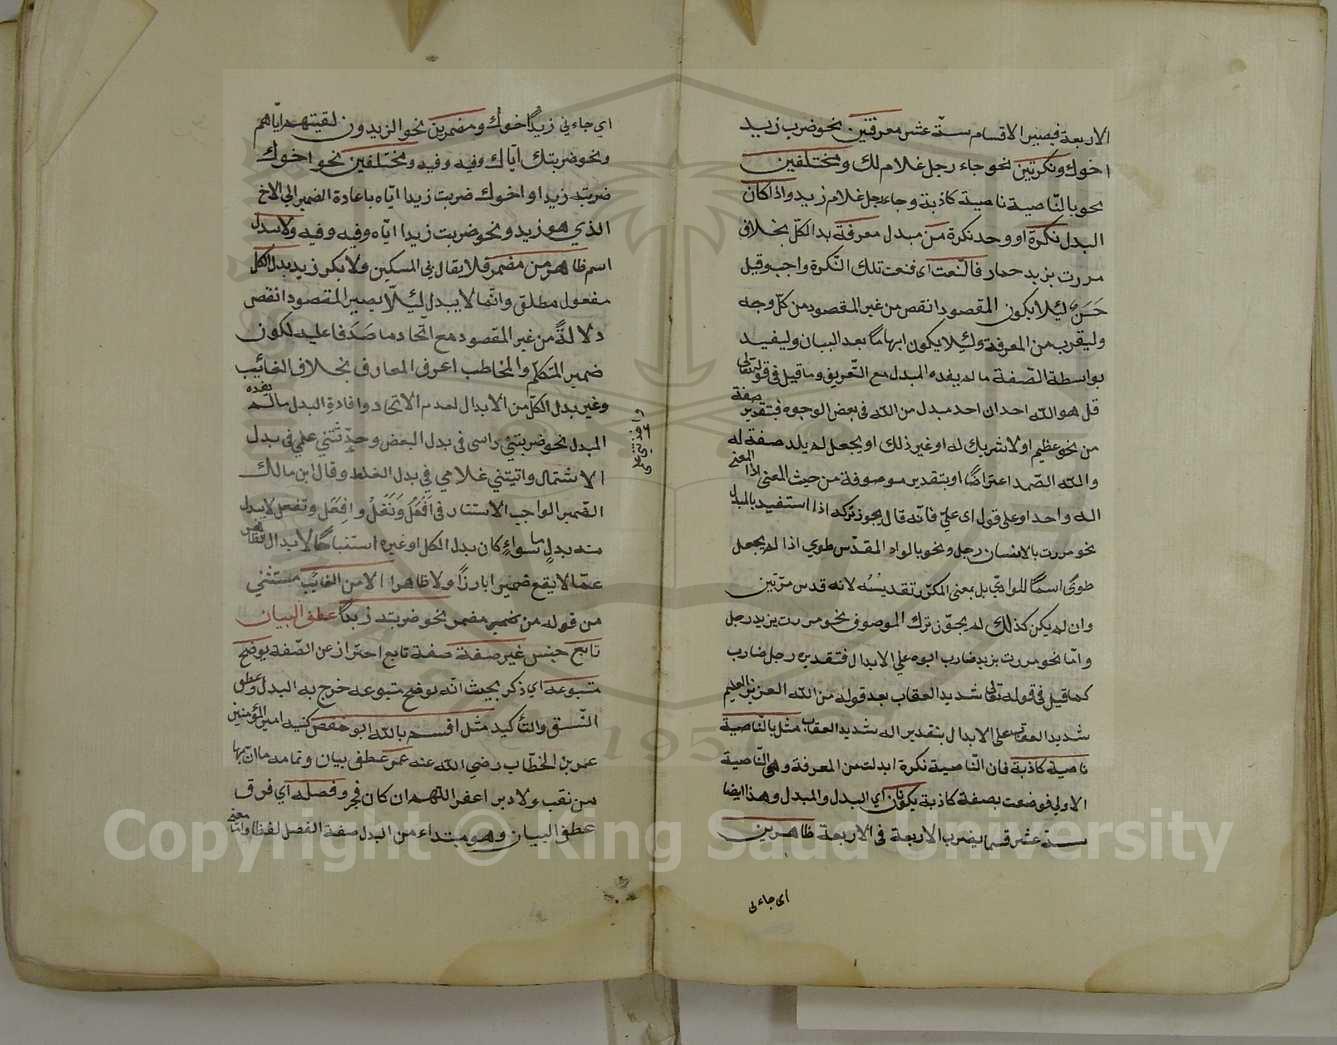 الاربعة فيصير الاقسام ستة عشر معرفتين نحو ضرب زيد
اخوك ونكرتين نحو جاء رجل غلام لك ومختلفين
نحو بالناصية ناصية كاذبة وجاء رجل غلام زيد واذا كان
البدل نكرة او وحد نكرة من مبدل معرفة بدل الكل بخلاف
مررت بزيد حمار فالنعت اى فنعت تلك النكرة واجب وقيل
حسن لئلا يكون المقصود انقص من غير المقصود من كل وجه
وليقرب من المعرفة ولئلا يكون ابهاما بعد البيان وليفيد
بواسطة الصفة ما لم يفده المبدل مع التعريف وما قيل فى قوله تعالى
قل هو الله احد ان احد مبدل من الله فى بعض الوجوه فبتقدير صفة
من نحو عظيم او لا شريك له او غير ذلك او يجعل لم يلد صفة له
والله الصمد اعتراضا او بتقدير موصوفة من حيث المعنى اذ المعنى
اله واحد او على قول ابى على فانه قال يجوز تركه اذا استفيد بالبدل
نحو مررت بالانسان رجل ونحو بالواد المقدس طوى اذا لم يجعل
طوى اسما للوادى بل بمعنى المكرر تقديسه لانه قدس مرتين
وان لم يكن كذلك لم يجوز ترك الموصوف نحو مررت بزيد رجل
واما نحو مررت بزيد ضارب ابوه على الابدال فتقديره رجل ضارب
كما قيل فى قوله تعالى شديد العقاب بعد قوله من الله العزيز العليم
شديد العقاب على الابدال بتقدير اله شديد العقاب مثل بالناصية
ناصية كاذبة فان الناصية نكرة ابدلت من المعرفة وهى الناصية
الاولى فوضعت بصفة كاذبة يكونان اى البدل والمبدل وهذا ايضا
ستة عشر قسما بضرب الاربعة فى الاربعة ظاهرين
اى جاءنى
اى جاءنى زيد اخوك ومضمرين نحو الزيدون لقيتهم اياهم
ونحو ضربتك اياك وفيه وفيه ومختلفين نحو اخوك
ضربته زيدا واخوك ضربت زيدا اياه باعادة الضمير الى الاخ
الذى هو زيد ونحو ضربت زيدا اياه وفيه وفيه ولا يبدل
اسم ظاهر من مضمر فلا يقال بى المسكين ولا بكر زيد بدل الكل
مفعول مطلق وانما لا يبدل لئلا يصير المقصود انقص
دلالة من غير المقصود مع اتحاد ما صدقا عليه لكون
ضمير المتكلم والمخاطب اعرف المعارف بخلاف الغائب
وغير بدل الكل من الابدال لعدم الاتحاد وافادة البدل ما لم يفده
المبدل نحو ضربتنى راسى فى بدل البعض وحدثتنى علمى فى بدل
الاشتمال واتيتنى غلامى فى بدل الغلط وقال ابن مالك
الضمير الواجب الاستتار فى افعل ونفعل وافعل وتفعل لا يبدل
منه بدل ما سواء كان بدل الكل او غيره استقباحا لابدال الظاهر
عما لا يقع ضميرا بارزا ولا ظاهرا الا من الغائب مستثنى
من قوله من ضمير مضمر نحو ضربته زيدا عطف البيان
تابع جنس غير صفة صفة تابع احتراز عن الصفة يوضح
متبوعه اى ذكر بحيث انه يوضح متبوعه خرج به البدل وعطف
النسق والتاكيد مثل اقسم بالله ابو حفص كنية امير المؤمنين
عمر بن الخطاب رضي الله عنه عمر عطف بيان وتمامه ما ان بها
من نقب ولا دبر اغفر اللهم ان كان فجر وفصله اى فرق
عطف البيان وهو مبتداء من البدل صفة الفصل لفظا واما معنى
Copyright © King Saud University
1957